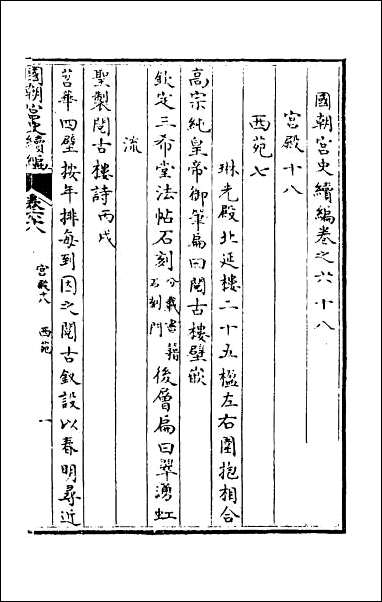 國朝宮史續編卷之六十八
宮殿十八
西苑七
琳光殿北延樓二十五楹左右圍抱相合
高宗純皇帝御筆扁曰閱古樓壁嵌
欽定三希堂法帖石刻分載書籍石刻門後層扁曰翠湧虹
流
聖製閱古樓詩丙戌
苕華四壁按年排每到因之閱古
設以春明尋近
國朝宮史續編
卷六八
宮殿十八
西苑
一